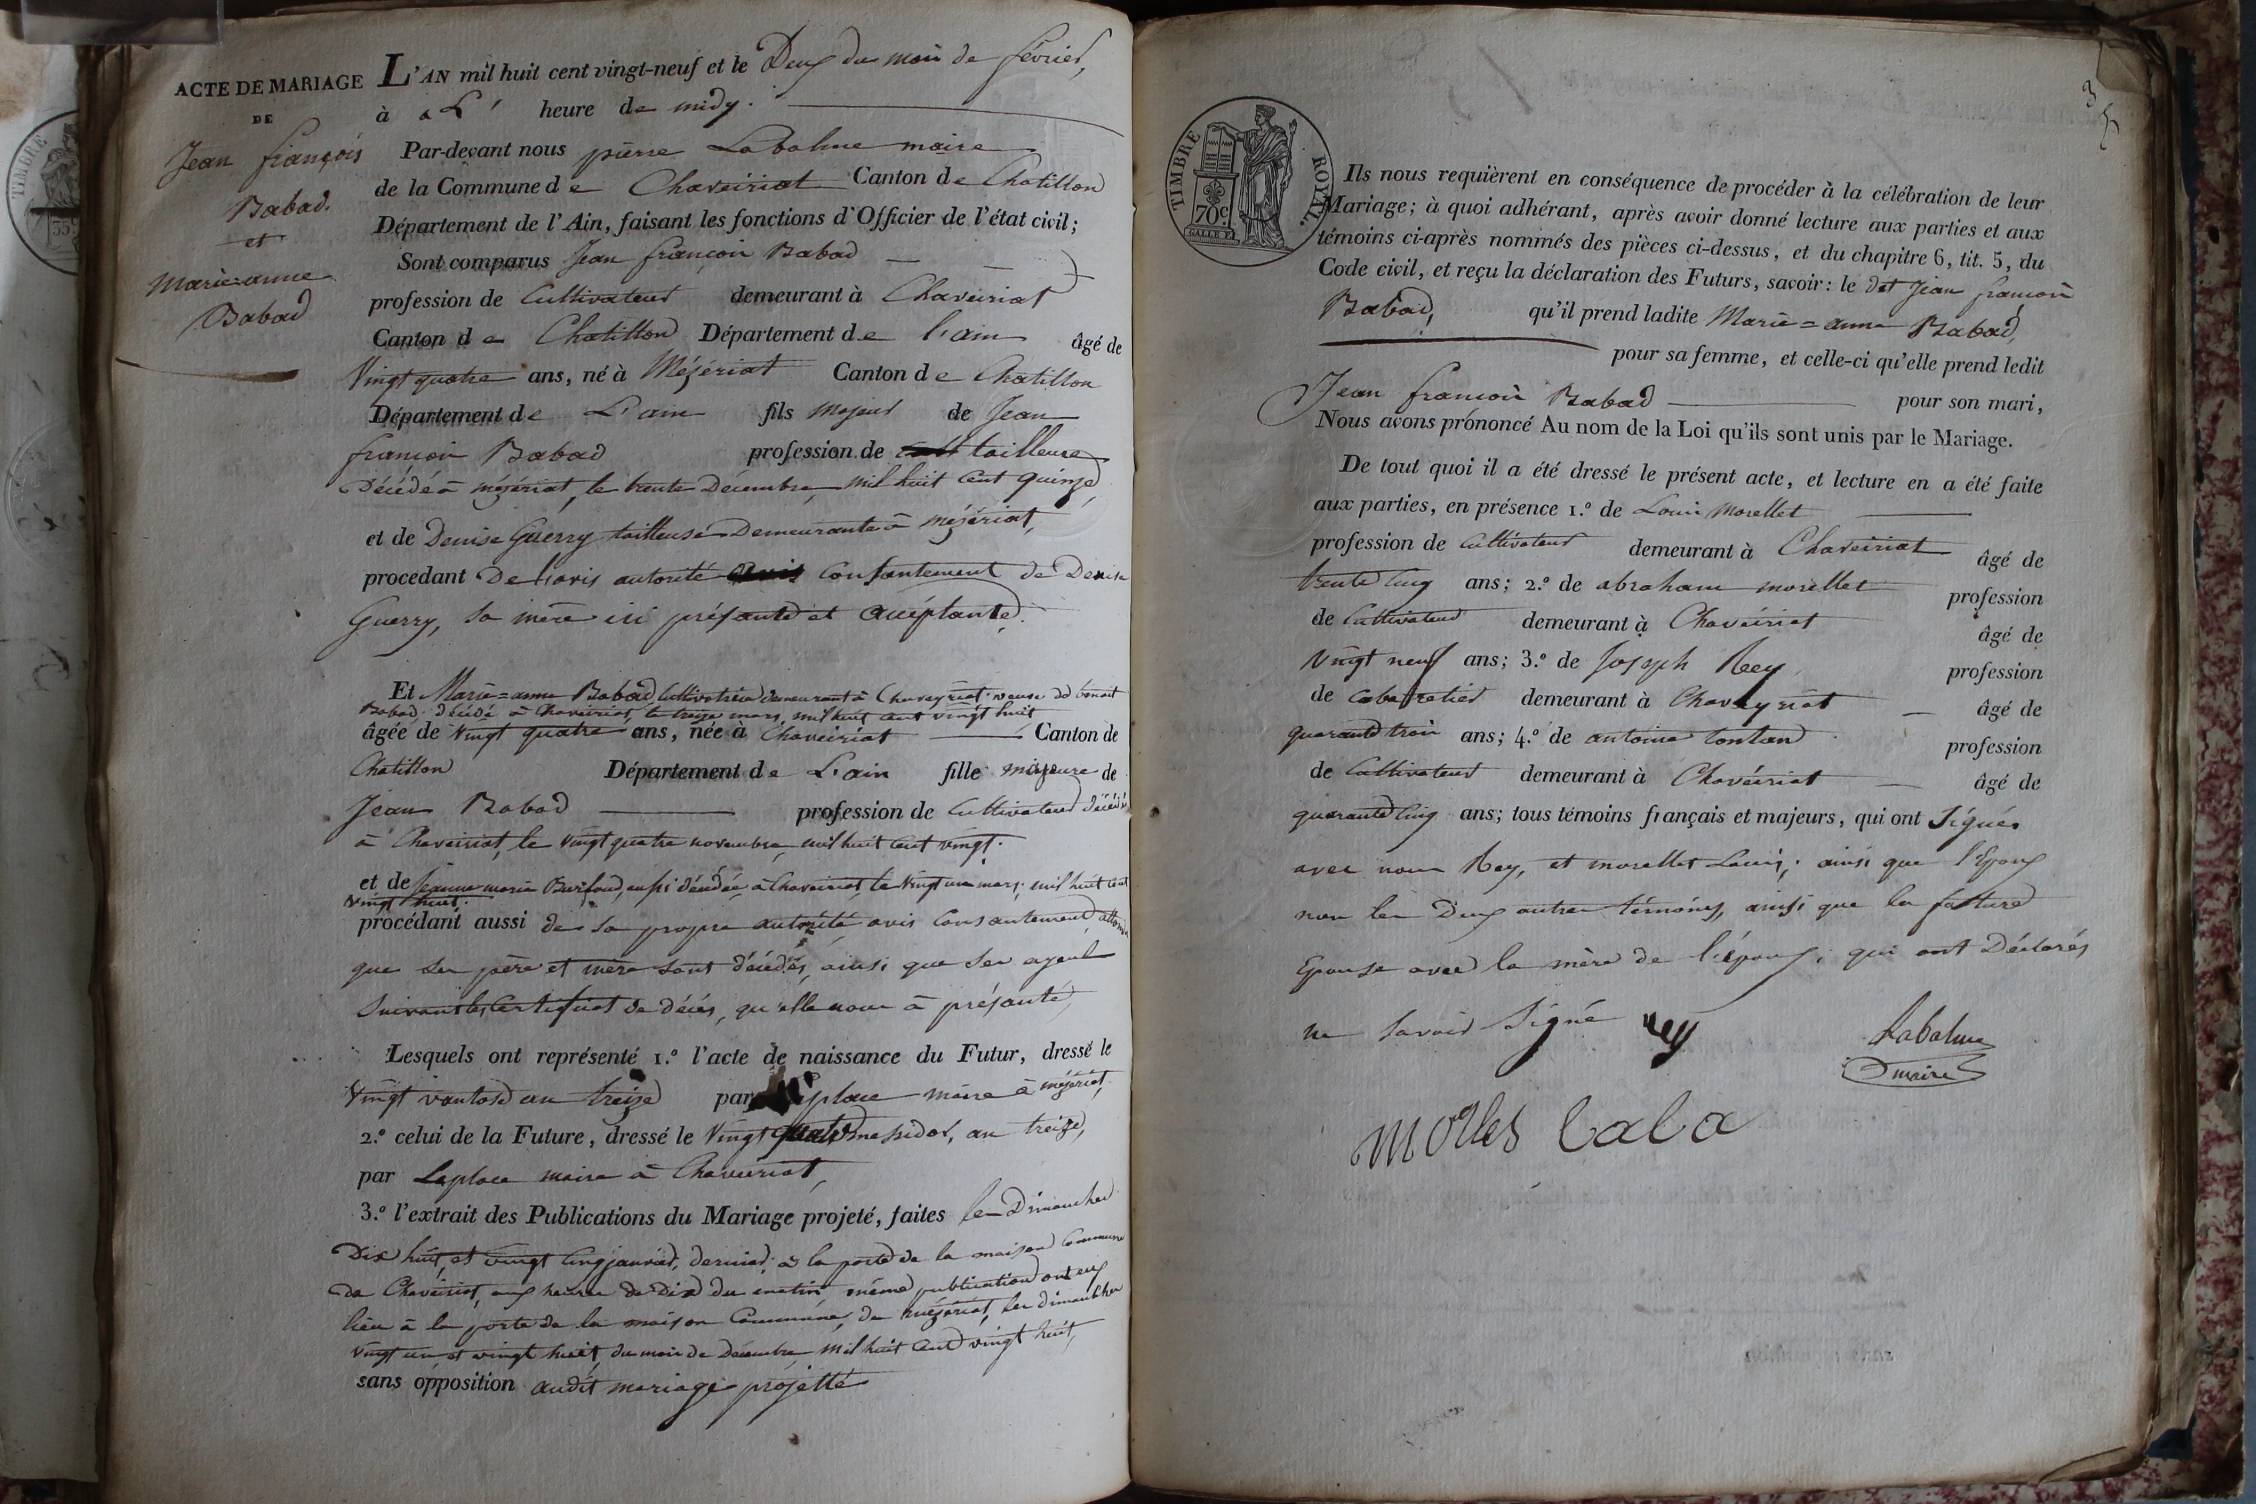 ACTE DE MARIAGE
DE
Jean françois
Babad.
et
Marie=anne
Babad
L'AN mil huit cent vingt-neuf et le Deux du mois de février,
à L' heure de midy.
Par-devant nous pierre Labalme maire
de la Commune de Chaveiriat Canton de Chatillon
Département de l'Ain, faisant les fonctions d'Officier de l'état civil;
Sont comparus Jean françois Babad
profession de Cultivateur demeurant à Chaveiriat
Canton de Chatillon Département de l'ain âgé de
Vingt quatre ans, né à Mézériat Canton de Chatillon
Département de L'ain fils majeur de Jean
françois Babad profession de tailleure
Décédé à mézériat, le trente Décembre, mil huit Cent quinze,
et de Denise Guerry tailleuse Demeurante à mézériat,
procedant De l'avis autorité Consantement de Denise
Guerry, sa mère ici présante et acceptante.
Et Marie=anne Babad Cultivatrice demeurant à Chaveyriat veuve de benoit
Babad décédé à Chaveiriat, le treize mars, mil huit cent vingt huit
âgée de Vingt quatre ans, née à Chaveiriat Canton de
Chatillon Département de L'ain fille majeure de
Jean Babad profession de Cultivateur décédé
à Chaveiriat, le Vingt quatre novembre, mil huit Cent vingt.
et de Jeanne marie aussi décédée à Chaveiriat, le Vingt un mars, mil huit cent
vingt huit.
procédant aussi de sa propre autorité avis Consantement, attendu
que ses père et mère sont décédés, ainsi que ses ayeul
Suivant les Certificat de décès, qu'elle nous à présanté,
Lesquels ont représenté 1.º l'acte de naissance du Futur, dressé le
Vingt vantose an treize par maire à mézériat,
2.º celui de la Future, dressé le Vingt quatre messidor, an treize,
par Laplace maire à Chaveiriat,
3.º l'extrait des Publications du Mariage projeté, faites les Dimanches
Dix huit, et vingt Cinq janvier, dernier, à la porte de la maison Commune
de Chaveiriat, aux heures de Dix du matin même publication ont eux
lieu à la porte de la maison Commune, de mézériat, les dimanches
vingt un et vingt huit, du mois de Décembre, mil huit Cent vingt huit,
sans opposition audit mariage projetté
3
Ils nous requièrent en conséquence de procéder à la célébration de leur
Mariage; à quoi adhérant, après avoir donné lecture aux parties et aux
témoins ci-après nommés des pièces ci-dessus, et du chapitre 6, tit. 5, du
Code civil, et reçu la déclaration des Futurs, savoir: le dit Jean françois
Babad, qu'il prend ladite Marie=anne Babad,
pour sa femme, et celle-ci qu'elle prend ledit
Jean françois Babad pour son mari,
Nous avons prononcé Au nom de la Loi qu'ils sont unis par le Mariage.
De tout quoi il a été dressé le présent acte, et lecture en a été faite
aux parties, en présence 1.º de Louis Morellet
profession de Cultivateur demeurant à Chaveiriat âgé de
trente Cinq ans; 2.º de abraham morellet profession
de Cultivateur demeurant à Chavéiriat âgé de
Vingt neuf ans; 3.º de Joseph Rey profession
de Cabaretier demeurant à Chaveyriat âgé de
quarante trois ans; 4.º de antoine tontan profession
de Cultivateur demeurant à Chavéiriat âgé de
quarante Cinq ans; tous témoins français et majeurs, qui ont Signés
avec nous Rey, et morellet Louis, ainsi que l'Epoux
non les Deux autres témoins, ainsi que la future
Epouse avec la mère de l'époux, qui ont Déclarés
ne Savoir Signé
rey
Labalme
maire
TIMBRE ROYAL
70c
TIMBRE
35c